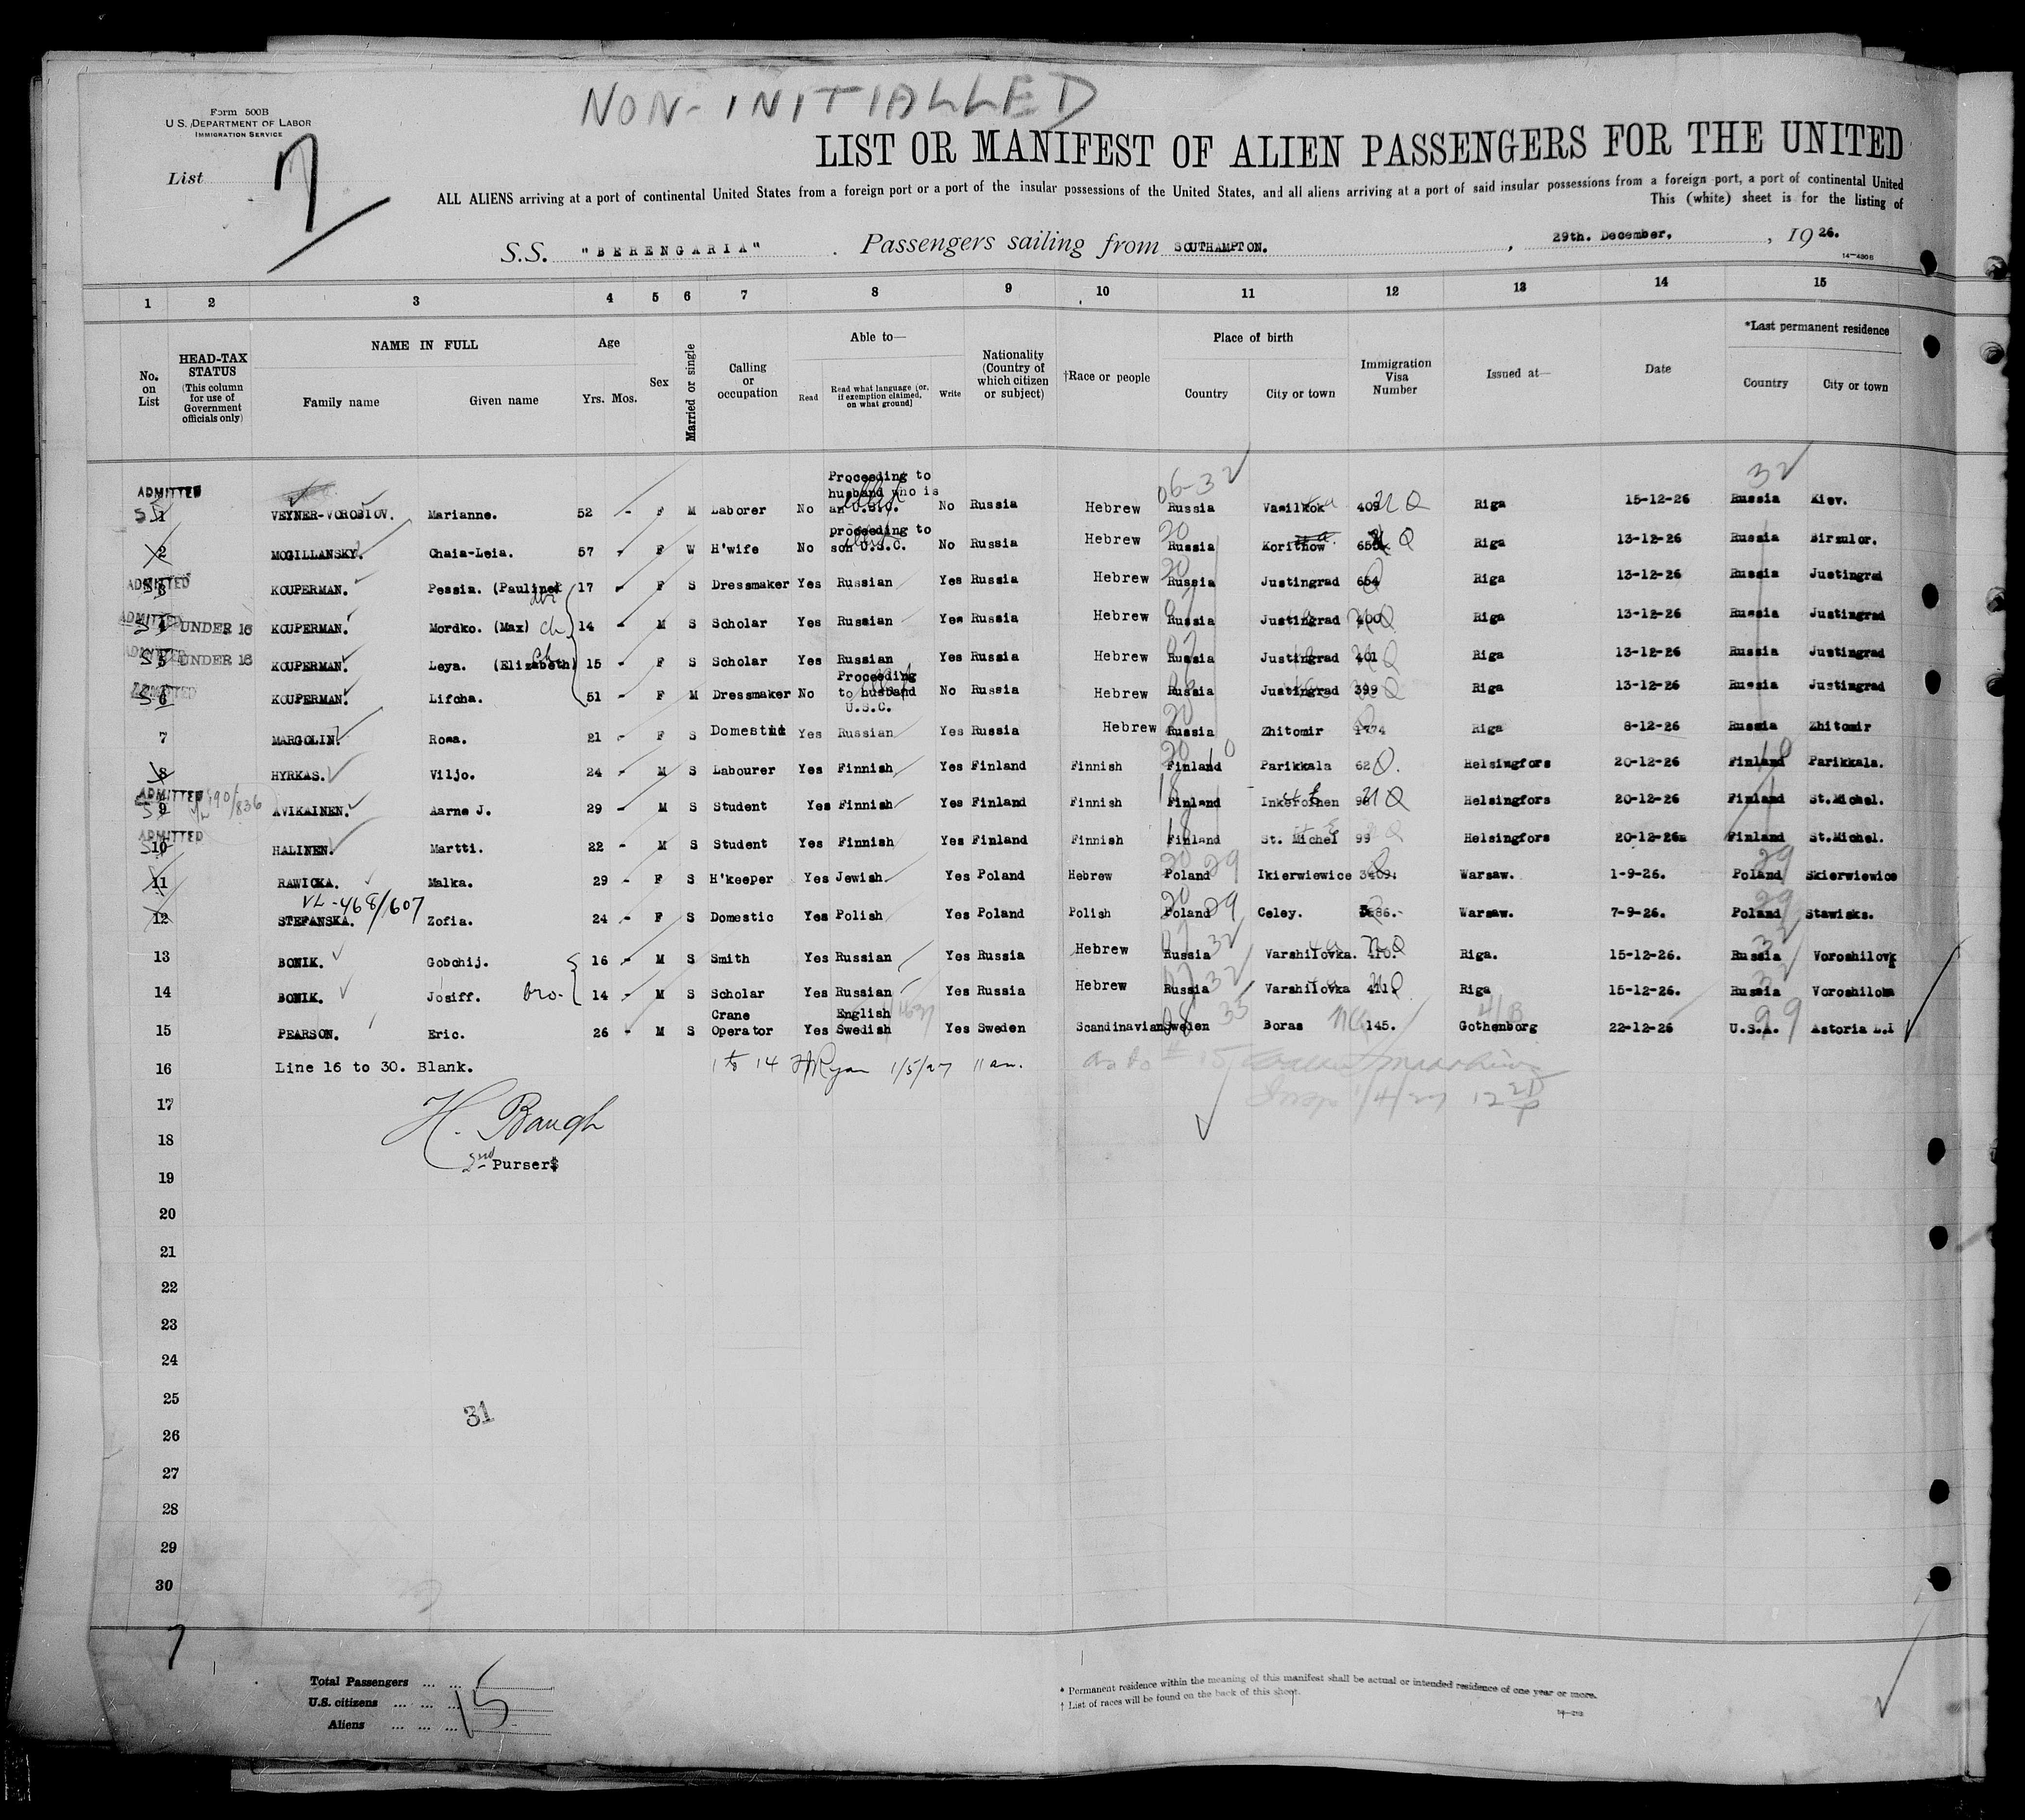 NON-INITIALLED
Form 500B
U.S. DEPARTMENT OF LABOR
IMMIGRATION SERVICE
List 7
LIST OR MANIFEST OF ALIEN PASSENGERS FOR THE UNITED
ALL ALIENS arriving at a port of continental United States from a foreign port or a port of the insular possessions of the United States, and all aliens arriving at a port of said insular possessions from a foreign port, a port of continental United
This (white) sheet is for the listing of
S.S. "BERENGARIA" . Passengers sailing from SOUTHAMPTON. , 29th. December. , 1926.
1 2 3 4 5 6 7 8 9 10 11 12 13 14 15
No. on List
HEAD-TAX STATUS (This column for use of Government officials only)
NAME IN FULL
Family name Given name
Age
Yrs. Mos.
Sex
Married or single
Calling or occupation
Able to—
Read Read what language (or, if exemption claimed, on what ground) Write
Nationality (Country of which citizen or subject)
†Race or people
Place of birth
Country City or town
Immigration Visa Number
Issued at—
Date
*Last permanent residence
Country City or town
ADMITTED 1 VEYNER-VOROBIOV. Marianne. 52 - F M Laborer No Proceeding to husband who is an U.S.C. No Russia Hebrew 06-32 Russia Vasilkok 409 Riga 15-12-26 32 Russia Kiev.
2 MOGILLANSKY. Chaia-Leia. 57 - F W H'wife No proceeding to son U.S.C. No Russia Hebrew 20 Russia Riga 13-12-26 Russia Birzulor.
ADMITTED 3 KOUPERMAN. Pessia. 17 - F S Dressmaker Yes Russian Yes Russia Hebrew 20 Russia Justingrad 654 Riga 13-12-26 Russia Justingrad
ADMITTED 4 UNDER 16 KOUPERMAN. Mordko. (Max) ch 14 - M S Scholar Yes Russian Yes Russia Hebrew 07 Russia Justingrad 400 Riga 13-12-26 Russia Justingrad
ADMITTED 5 UNDER 16 KOUPERMAN. Leya. (Elizabeth) ch 15 - F S Scholar Yes Russian Yes Russia Hebrew 07 Russia Justingrad 401 Riga 13-12-26 Russia Justingrad
ADMITTED 6 KOUPERMAN. Lifcha. 51 - F M Dressmaker No Proceeding to husband U.S.C. No Russia Hebrew 06 Russia Justingrad 399 Riga 13-12-26 Russia Justingrad
7 MARGOLIN. Rosa. 21 - F S Domestic Yes Russian Yes Russia Hebrew 20 Russia Zhitomir 1774 Riga 8-12-26 Russia Zhitomir
8 HYRKAS. Viljo. 24 - M S Labourer Yes Finnish Yes Finland Finnish 20 Finland 10 Parikkala 62 Helsingfors 20-12-26 Finland 10 Parikkala.
ADMITTED 9 AVIKAINEN. Aarne J. 29 - M S Student Yes Finnish Yes Finland Finnish 18 Finland Helsingfors 20-12-26 Finland St.Michel.
ADMITTED 10 HALINEN. Martti. 22 - M S Student Yes Finnish Yes Finland Finnish 18 Finland St. Michel 99 Helsingfors 20-12-26 Finland St.Michel.
11 RAWICKA. Malka. 29 - F S H'keeper Yes Jewish. Yes Poland Hebrew 20 Poland 29 Ikierwiewice 3409. Warsaw. 1-9-26. 29 Poland Skierwiewice
VL-468/607
12 STEFANSKA. Zofia. 24 - F S Domestic Yes Polish Yes Poland Polish 20 Poland 29 Celey. Warsaw. 7-9-26. 29 Poland Stawisks.
13 BONIK. Gobchij. 16 - M S Smith Yes Russian Yes Russia Hebrew 07 Russia 32 Varshilovka. 410. Riga. 15-12-26. 32 Russia
14 BONIK. Josiff. bro. 14 - M S Scholar Yes Russian Yes Russia Hebrew 07 Russia 32 Varshilovka 411. Riga 15-12-26. 32 Russia
15 PEARSON. Eric. 26 - M S Crane Operator Yes English Swedish Yes Sweden Scandinavian 08 Sweden 33 Boras NQ 145. Gothenborg 22-12-26 99 U.S.A. Astoria L.I
16 Line 16 to 30. Blank. 1 to 14 Ryan 1/5/27 11 am. as to # 15
Insp 1/4/27
17
H. Baugh
18
2nd Purser
19
20
21
22
23
24
25
31
26
27
28
29
30
7
Total Passengers ... ...
U.S. citizens ... ... ... 15
Aliens ... ... ...
* Permanent residence within the meaning of this manifest shall be actual or intended residence of one year or more.
† List of races will be found on the back of this sheet.